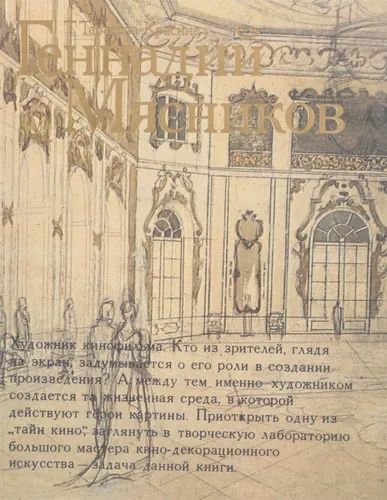 Геннадий
Мясников
Художник кинофильма. Кто из зрителей, глядя
на экран, задумывается о его роли в создании
произведения? А между тем именно художником
создается та жизненная среда, в которой
действуют герои картины. Приоткрыть одну из
„тайн кино“, заглянуть в творческую лабораторию
большого мастера кино-декорационного
искусства — задача данной книги.